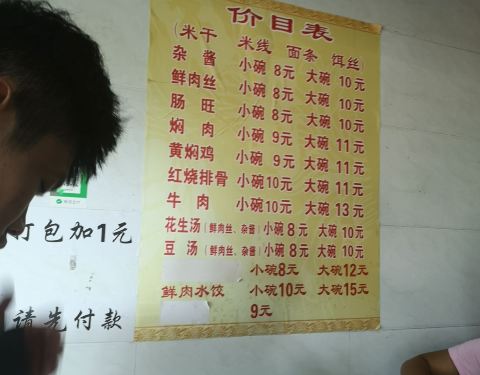 价目表
(米干 米线 面条 饵丝)
杂酱 小碗 8元 大碗 10元
鲜肉丝 小碗 8元 大碗 10元
肠旺 小碗 8元 大碗 10元
焖肉 小碗 9元 大碗 11元
黄焖鸡 小碗 9元 大碗 11元
红烧排骨 小碗10元 大碗 11元
牛肉 小碗10元 大碗 13元
花生汤(鲜肉丝、杂酱)小碗 8元 大碗 10元
豆汤(鲜肉丝、杂酱)小碗 8元 大碗 10元
小碗8元 大碗12元
鲜肉水饺 小碗10元 大碗15元
9元
打包加1元
请先付款